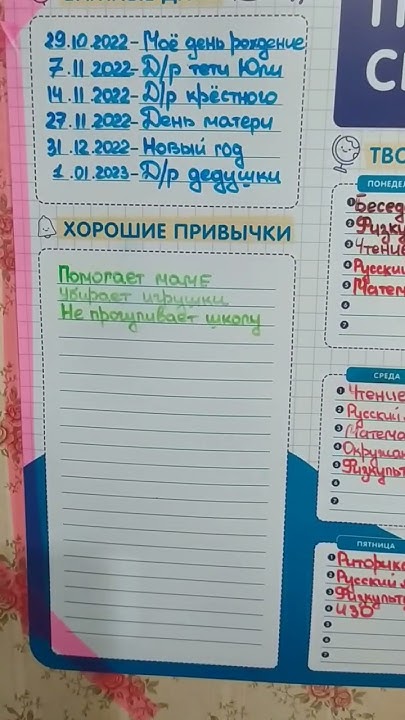 29.10.2022-Моё день рождение
7.11.2022-Д/р тети Юли
14.11.2022-Д/р крёстного
27.11.2022-День матери
31.12.2022-Новый год
1.01.2023-Д/р дедушки
ХОРОШИЕ ПРИВЫЧКИ
Помогает маме
Убирает игрушки
Не прогуливает школу
ТВО
ПОНЕДЕЛ
1 Бесед
2 Физку
3 Чтение
4 Русски
5 Матем
6
7
СРЕДА
1 Чтение
2 Русский
3 Матема
4 Окружа
5 Физкульт
6
7
ПЯТНИЦА
1 Риторика
2 Русский
3 Физкульту
4 ИЗО
5
6
7